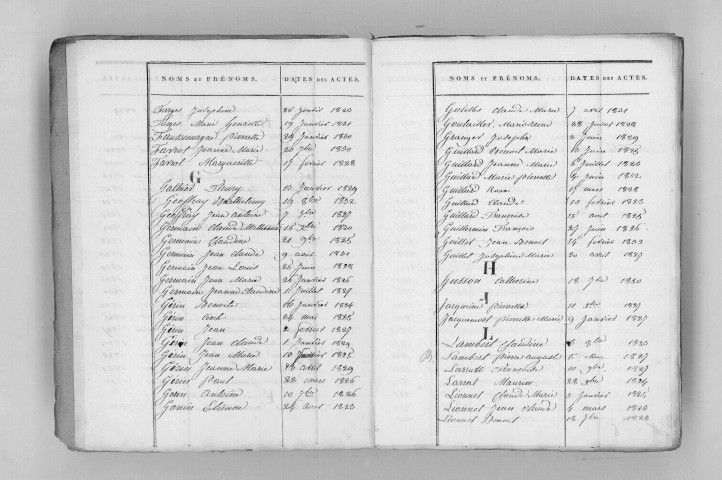 NOMS ET PRÉNOMS. DATES DES ACTES.
Farge Josephine 28 janvier 1823
Farges Marie henriette 19 janvier 1821
pierrette 29 janvier 1830
Favrot Jeanne Marie 20 9bre 1830
Favrot Marguerite 17 fevrier 1828
G
Galhier Fleury 12 janvier 1829
Geoffray Barthelemy 19 8bre 1832
Geoffray jean antoine 7 1827
Germain claude 1820
Germain Claudine 20 9bre 1825
Germain jean claude 9 aout 1821
Germain jean Louis 26 juin 1828
Germain jean Marie 26 janvier 1826
Germain jeanne claudine 11 juillet 1827
Gérin Benoite 16 janvier 1824
Gérin 24 mai 1825
Gérin Jean 2 fevrier 1827
Gérin jean claude 1 janvier 1829
Gérin jean Marie 10 fevrier 1825
Gérin jeanne Marie avril 1829
Gérin Paul 22 mars 1826
Gonin Antoine 10 7bre 1826
Gonin Etienne 24 aout 1823
NOMS ET PRÉNOMS. DATES DES ACTES.
claude Marie 7 avril 1821
Marie 28 1822
Granger Josephe 2 juin 1829
Guillard Benoit Marie 10 juin 1825
Guillard Jeanne Marie 6 juillet 1823
Guillar Marie pierrette 4 juin 1832
Guillar 17 mars 1828
Guillard claude 10 fevrier 1823
Guillard francois 15 aout 1825
Guillermin François 27 juin 1826
Guillot Jean Benoit 14 fevrier 1832
Guillot Josephine Marie 20 avril 1827
H
husson catherine 18 7bre 1820
I
Jacquine pierrette 11 Xbre 1827
Jacquemot pierrette Marie 9 janvier 1827
L
Lambert Claudine 6 8bre 1820
Lambert pierre auguste 15 1827
françoise 10 9bre 1827
Larrat Maurice 28 Xbre 1824
Lionnet Claude Marie 2 janvier 1825
Lionnet Jean claude 4 mars 1823
Lionnet Benoit 18 7bre 1822